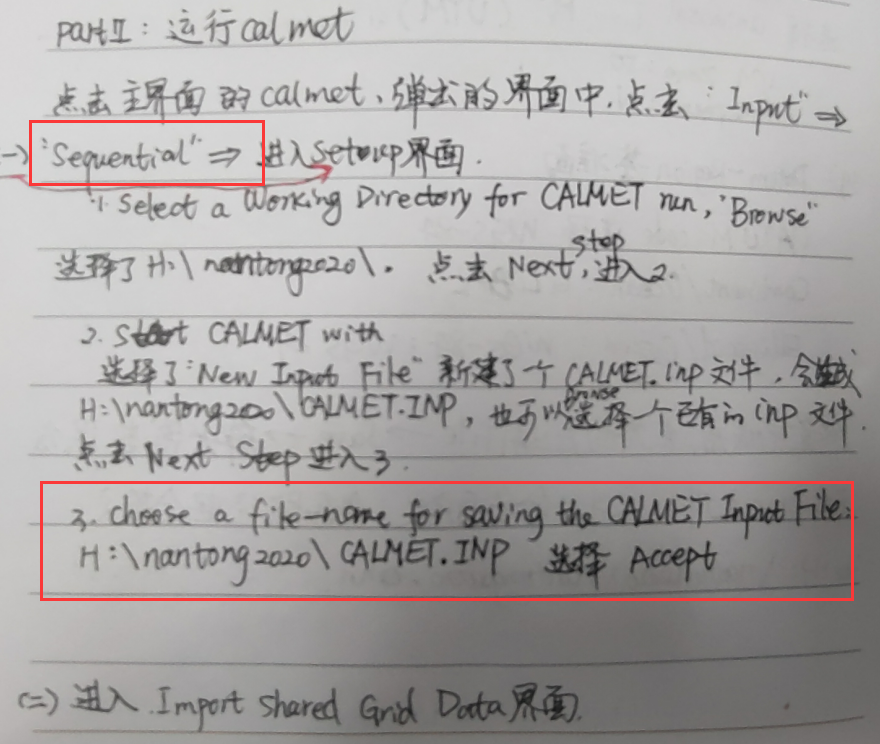 Part II：运行calmet
点击主界面的calmet、弹出的界面中，点击“Input”⇒
(一)“Sequential”⇒ 进入Setup界面.
1. Select a Working Directory for CALMET run, "Browse"
选择了 H:\nantong2020\. 点击 Next step, 进入2.
2. Start CALMET with
选择了“New Input File” 新建了个 CALMET.inp 文件，会生成
H:\nantong2020\CALMET.INP，也可以browse选择一个已有的inp文件.
点击 Next Step 进入3.
3. Choose a file-name for saving the CALMET Input File:
H:\nantong2020\CALMET.INP 选择 Accept
(二) 进入 Import Shared Grid Data界面.